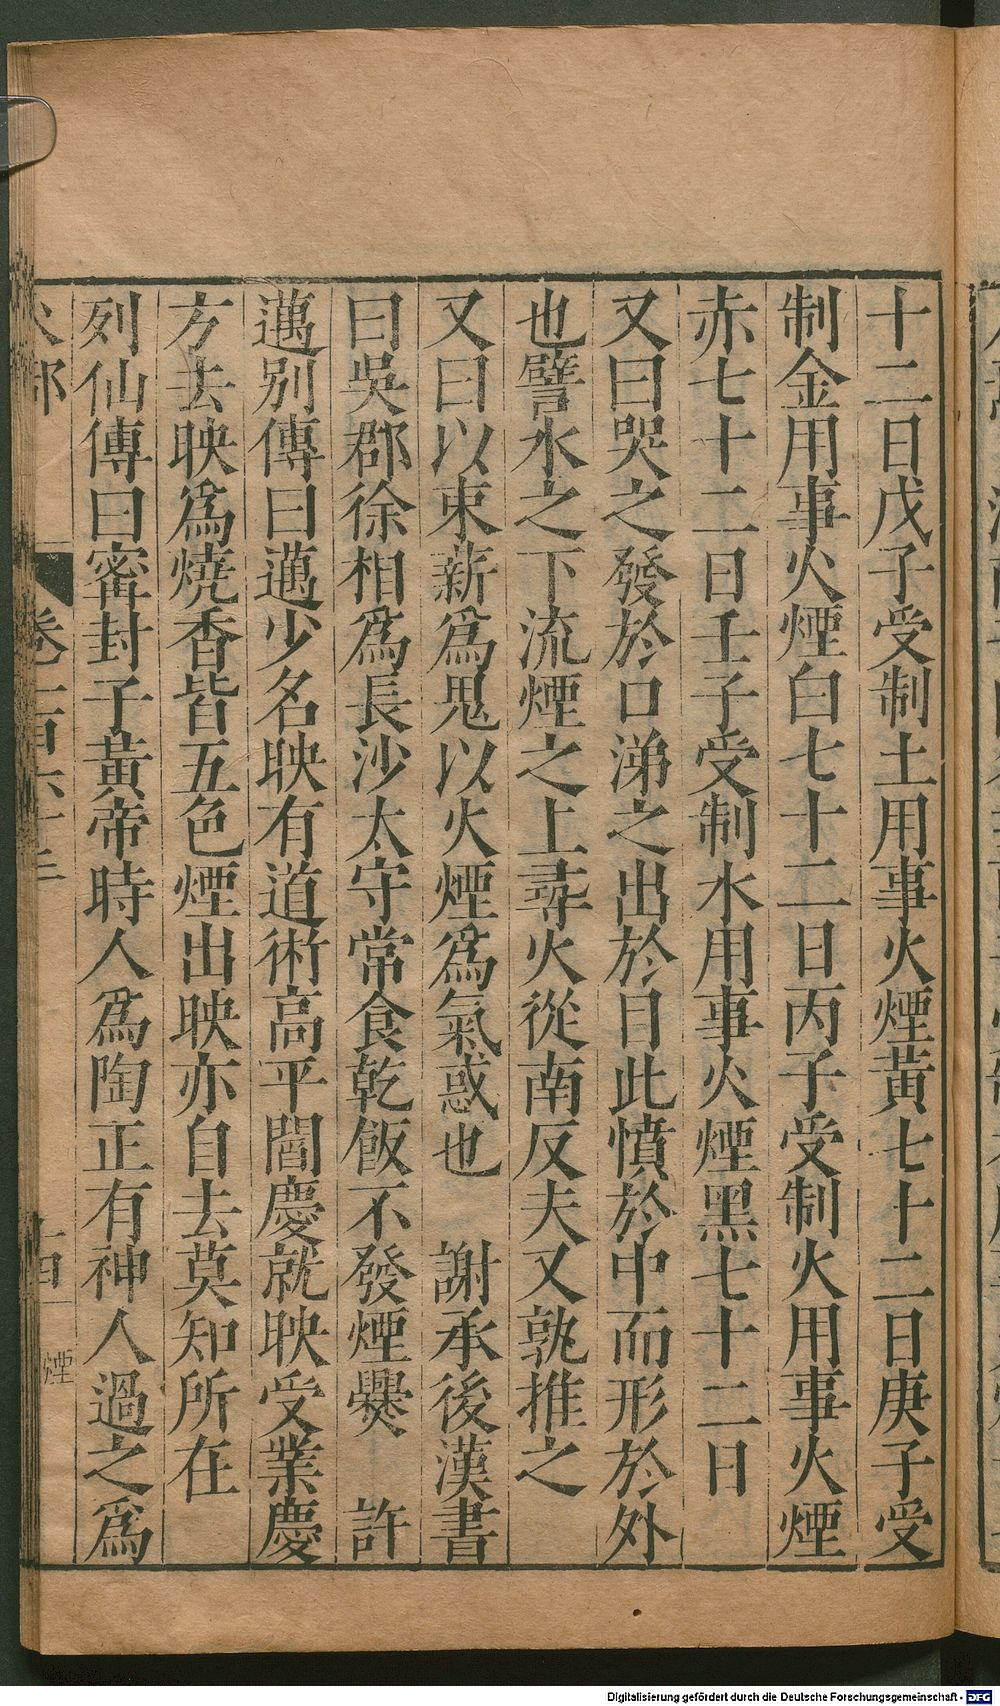 十二日戊子受制土用事火煙黃七十二日庚子受
制金用事火煙白七十二日丙子受制火用事火煙
赤七十二日壬子受制水用事火煙黑七十二日
又曰哭之發於口涕之出於目此憤於中而形於外
也譬水之下流煙之上尋火從南反夫又孰推之
又曰以東薪為鬼以火煙為氣惑也　謝承後漢書
曰吳郡徐相為長沙太守常食乾飯不發煙爨　許
邁別傳曰邁少名映有道術高平閻慶就映受業慶
方去映為燒香皆五色煙出映亦自去莫知所在
列仙傳曰甯封子黃帝時人為陶正有神人過之為
火部　卷一百六十三　煙
Digitalisierung gefördert durch die Deutsche Forschungsgemeinschaft - DFG